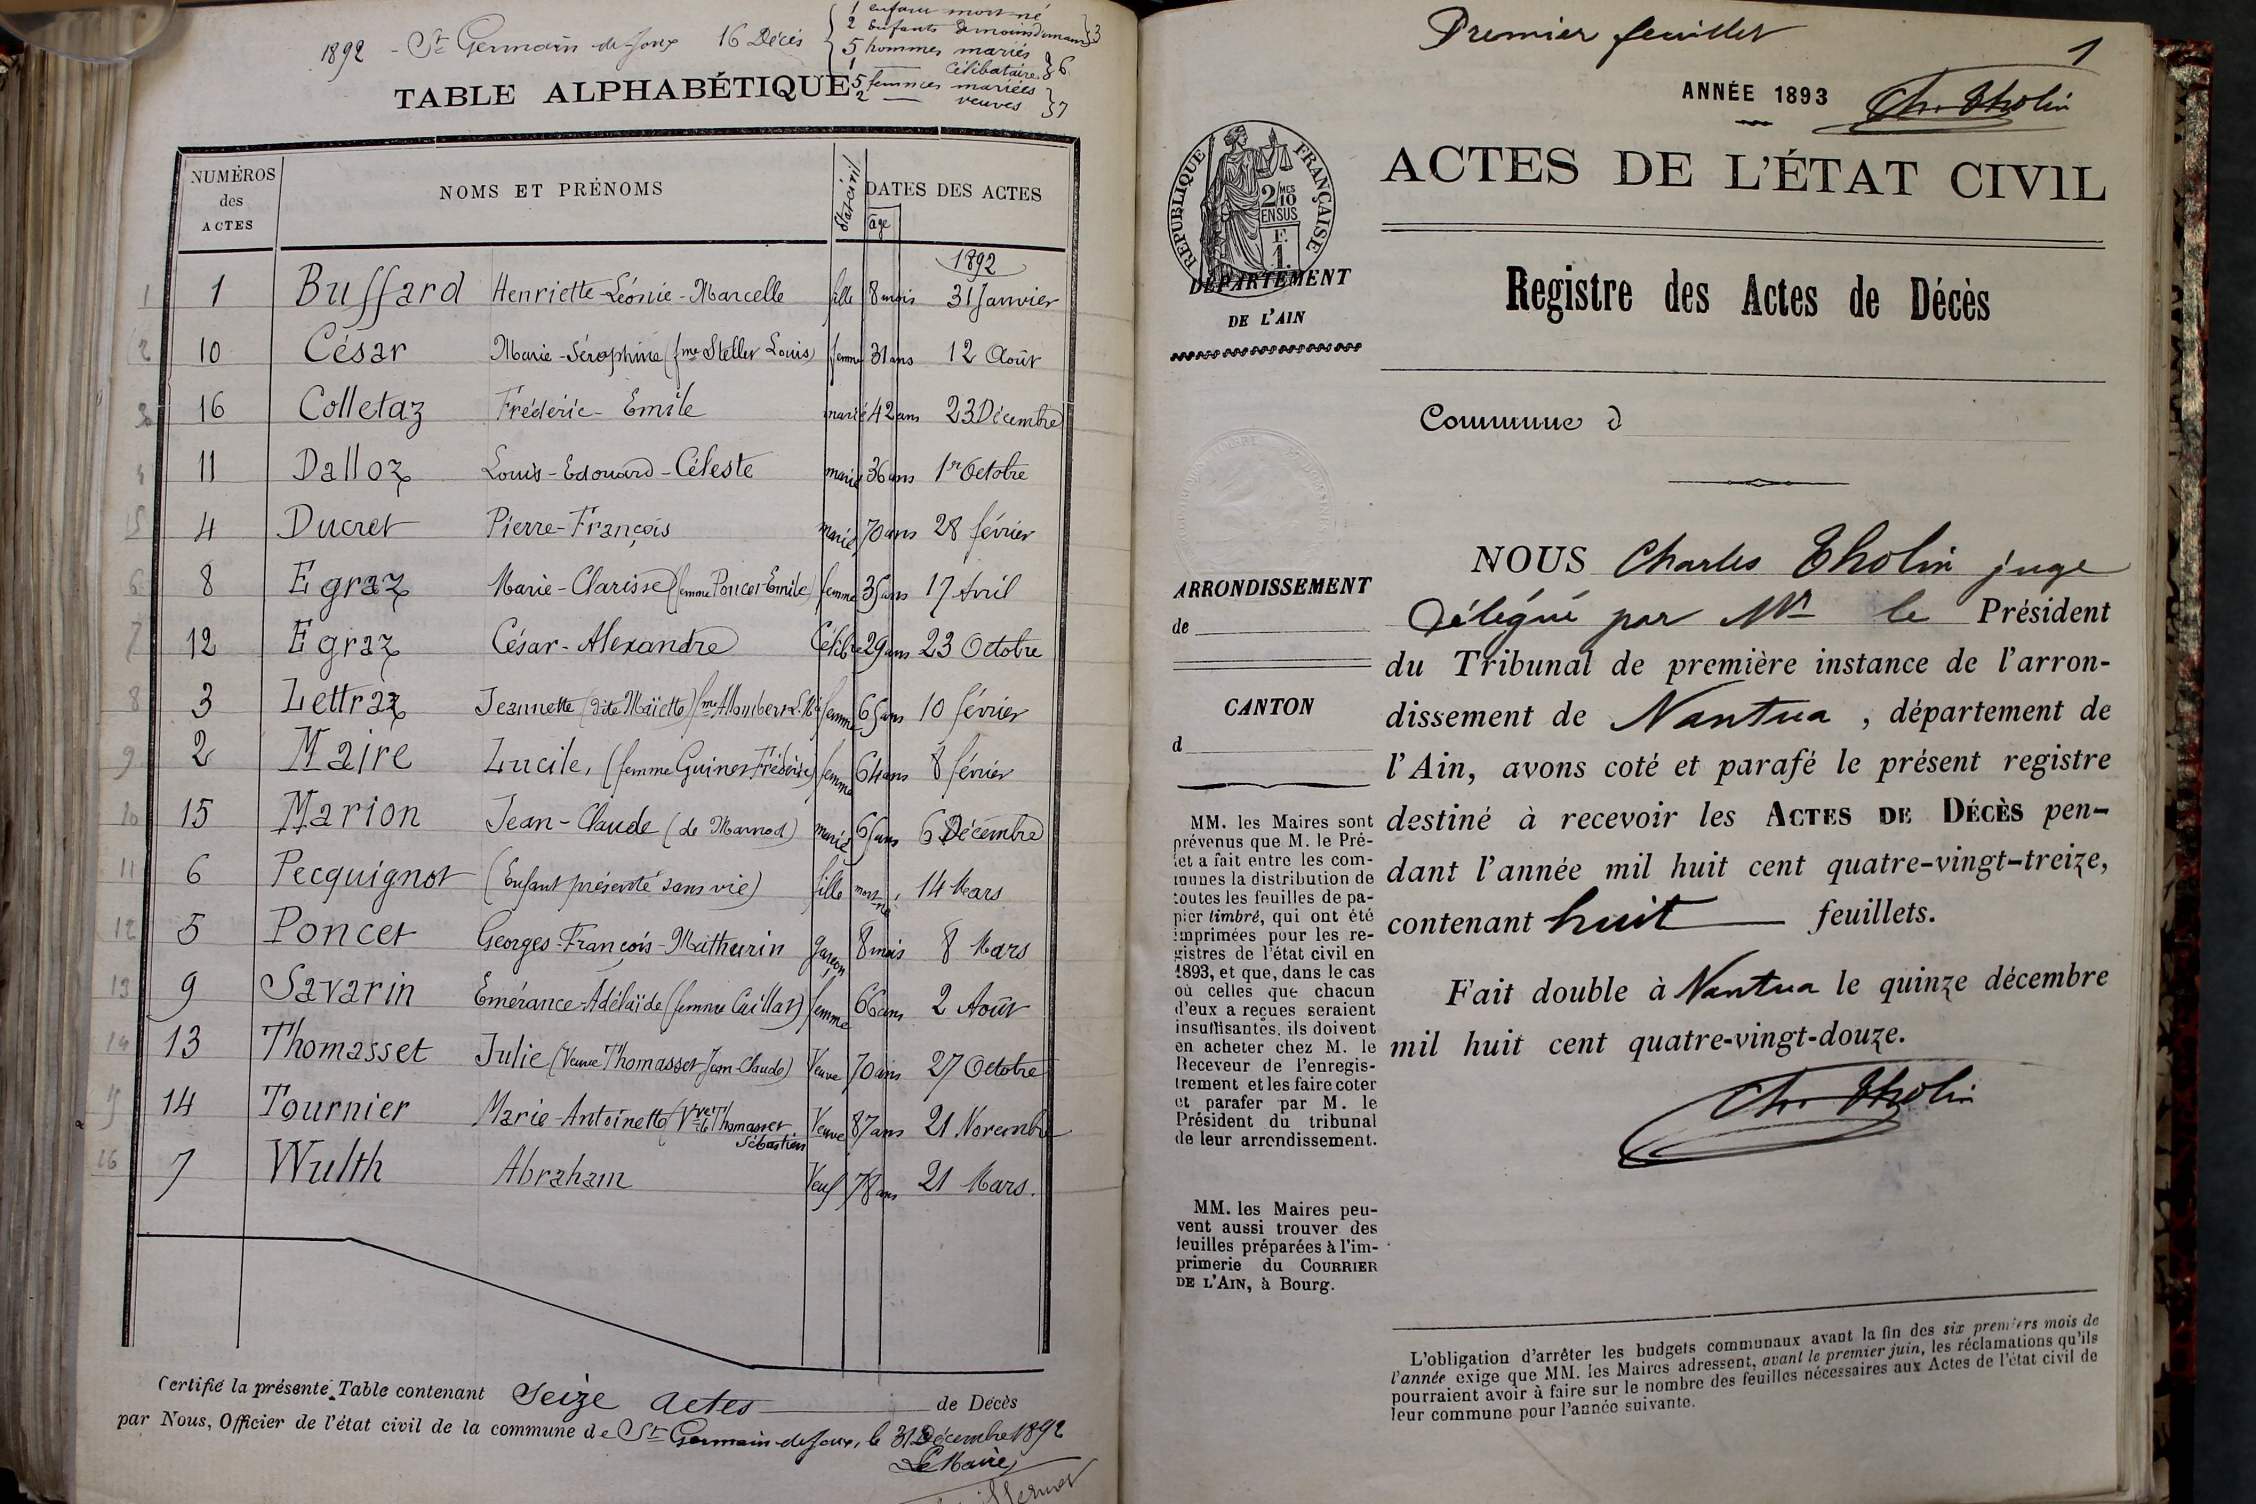 1892 - St Germain-de-Joux 16 Décès
1 enfant mort né
2 enfants de moins d'un an } 3
5 hommes mariés
1 — célibataire } 6
5 femmes mariées
2 — veuves } 7
TABLE ALPHABÉTIQUE
NUMÉROS des ACTES NOMS ET PRÉNOMS État-civil DATES DES ACTES
âge
1892
1 1 Buffard Henriette-Léonie-Marcelle fille 8 mois 31 Janvier
2 10 César Marie-Séraphine (fme Steller Louis) femme 31 ans 12 Août
3 16 Colletaz Frédéric-Emile marié 42 ans 23 Décembre
4 11 Dalloz Louis-Edouard-Céleste marié 36 ans 1er Octobre
5 4 Ducret Pierre-François marié 70 ans 28 février
6 8 Egraz Marie-Clarisse (femme Poncet Emile) femme 35 ans 17 Avril
7 12 Egraz César-Alexandre Célibre 29 ans 23 Octobre
8 3 Lettraz Jeannette (dite Maïette) femme 65 ans 10 février
9 2 Maire Lucile, (femme Guinet Frédéric) femme 64 ans 8 février
10 15 Marion Jean-Claude (de Marnod) marié 66 ans 6 Décembre
11 6 Pecquignot (Enfant présenté sans vie) fille mort-né 14 Mars
12 5 Poncet Georges-François-Mathurin garçon 8 mois 8 Mars
13 9 Savarin Emérance-Adélaïde (femme Caillat) femme 66 ans 2 Août
14 13 Thomasset Julie (Veuve Thomasset Jean-Claude) Veuve 70 ans 27 Octobre
15 14 Tournier Marie-Antoinette (Vve de Thomasset Veuve 87 ans 21 Novembre
Sébastien
16 7 Wulth Abraham Veuf 78 ans 21 Mars.
Certifié la présente Table contenant Seize actes de Décès
par Nous, Officier de l'état civil de la commune de St Germain-de-Joux, le 31 Décembre 1892
Le Maire,
Premier feuillet
1
ANNÉE 1893 Ch. Tholin
ACTES DE L'ÉTAT CIVIL
RÉPUBLIQUE FRANÇAISE
2/10 MES
EN SUS
F.
1.
DÉPARTEMENT
DE L'AIN
Registre des Actes de Décès
Commune d
ARRONDISSEMENT
de
CANTON
d
MM. les Maires sont
prévenus que M. le Pré-
fet a fait entre les com-
munes la distribution de
toutes les feuilles de pa-
pier timbré, qui ont été
imprimées pour les re-
gistres de l'état civil en
1893, et que, dans le cas
où celles que chacun
d'eux a reçues seraient
insuffisantes, ils doivent
en acheter chez M. le
Receveur de l'enregis-
trement et les faire coter
et parafer par M. le
Président du tribunal
de leur arrondissement.
MM. les Maires peu-
vent aussi trouver des
feuilles préparées à l'im-
primerie du COURRIER
DE L'AIN, à Bourg.
NOUS Charles Tholin juge
délégué par Mr le Président
du Tribunal de première instance de l'arron-
dissement de Nantua, département de
l'Ain, avons coté et parafé le présent registre
destiné à recevoir les ACTES DE DÉCÈS pen-
dant l'année mil huit cent quatre-vingt-treize,
contenant huit feuillets.
Fait double à Nantua le quinze décembre
mil huit cent quatre-vingt-douze.
Ch. Tholin
L'obligation d'arrêter les budgets communaux avant la fin des six premiers mois de
l'année exige que MM. les Maires adressent, avant le premier juin, les réclamations qu'ils
pourraient avoir à faire sur le nombre des feuilles nécessaires aux Actes de l'état civil de
leur commune pour l'année suivante.